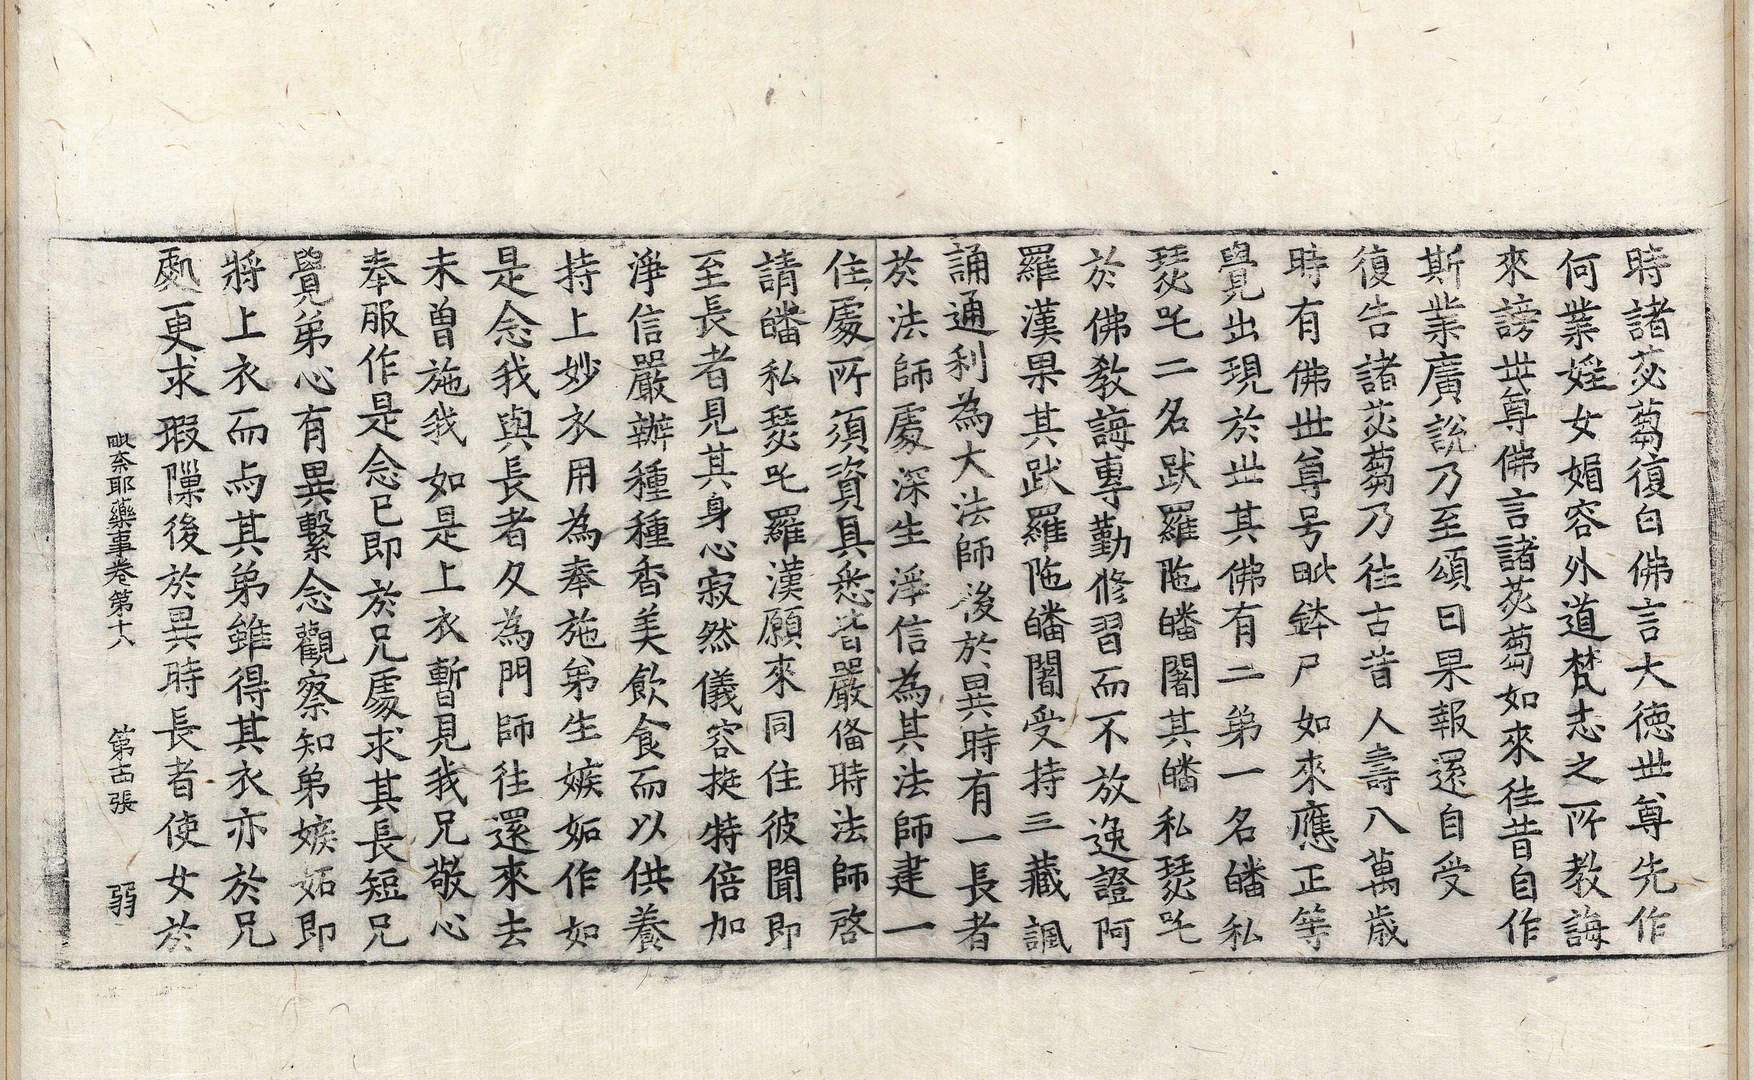 時諸苾蒭復白佛言大德世尊先作
何業婬女媚容外道梵志之所教誨
來謗世尊佛言諸苾蒭如來往昔自作
斯業廣說乃至頌曰果報還自受
復告諸苾蒭乃往古昔人壽八萬歲
時有佛世尊号毗鉢尸如來應正等
覺出現於世其佛有二弟一名皤私
瑟吒二名跋羅陁皤闍其皤私瑟吒
於佛教誨專勤修習而不放逸證阿
羅漢果其跋羅陁皤闍受持三藏諷
誦通利為大法師後於異時有一長者
於法師處深生淨信為其法師建一
住處所須資具悉皆嚴俻時法師啓
請皤私瑟吒羅漢願來同住彼聞即
至長者見其身心寂然儀容挻特倍加
淨信嚴辦種種香美飲食而以供養
持上妙衣用為奉施弟生嫉妬作如
是念我與長者久為門師往還來去
未曾施我如是上衣暫見我兄敬心
奉服作是念已即於兄處求其長短兄
覺弟心有異繫念觀察知弟嫉妬即
將上衣而与其弟雖得其衣亦於兄
處更求瑕隟後於異時長者使女於
毗奈耶藥事卷第十八 第古張 弱